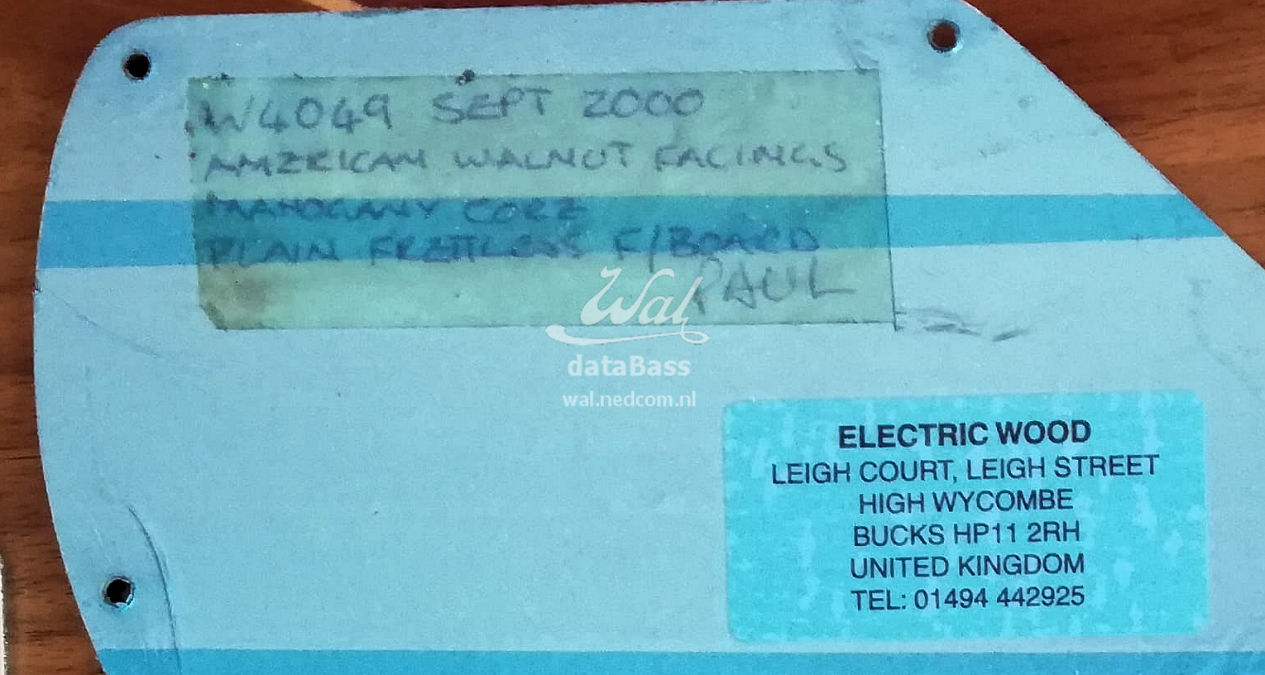 W4049 SEPT 2000
AMERICAN WALNUT FACINGS
MAHOGANY CORE
PLAIN FRETLESS F/BOARD
PAUL
Wal
dataBass
wal.nedcom.nl
ELECTRIC WOOD
LEIGH COURT, LEIGH STREET
HIGH WYCOMBE
BUCKS HP11 2RH
UNITED KINGDOM
TEL: 01494 442925